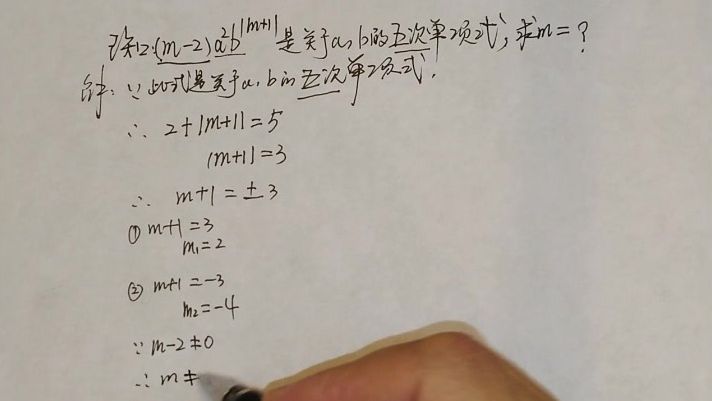 练2.(m-2)a²b^|m+1|是关于a,b的五次单项式,求m=?
解:∵此式是关于a,b的五次单项式.
∴ 2+|m+1|=5
|m+1|=3
∴ m+1=±3
① m+1=3
m₁=2
② m+1=-3
m₂=-4
∵ m-2≠0
∴ m≠